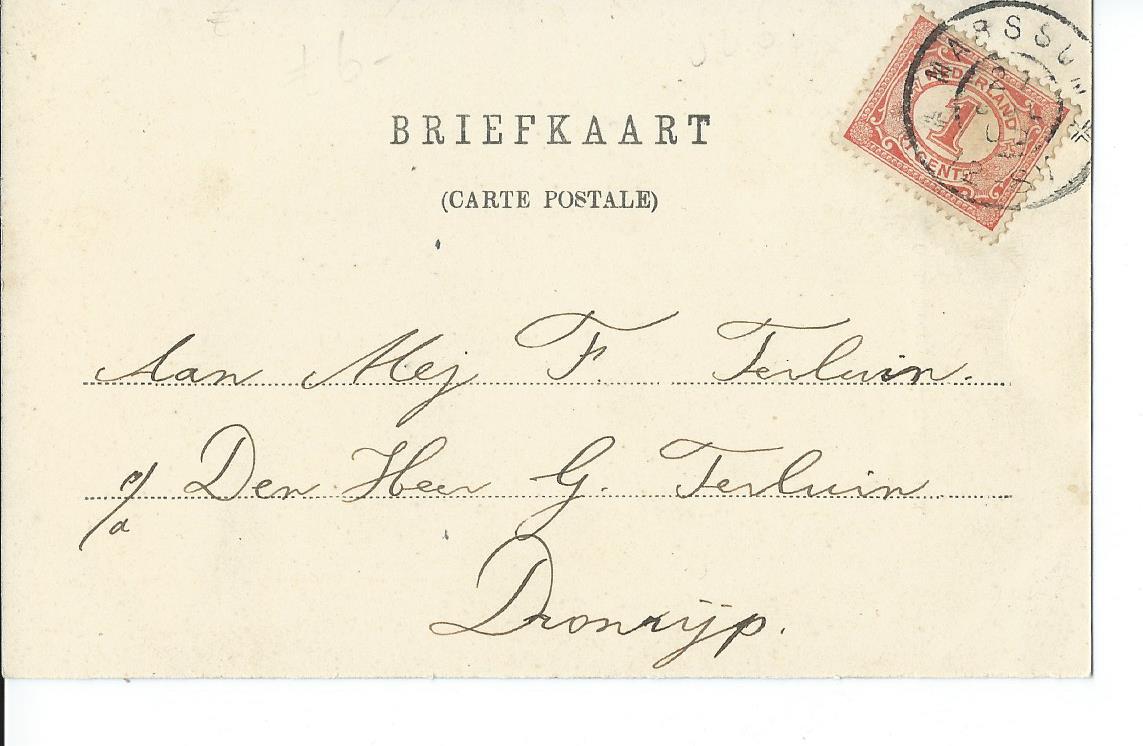 MARSSUM
NEDERLAND
1
CENT
BRIEFKAART
(CARTE POSTALE)
Aan Mej F. Terluin.
p/a Den Heer G. Terluin
Dronrijp.